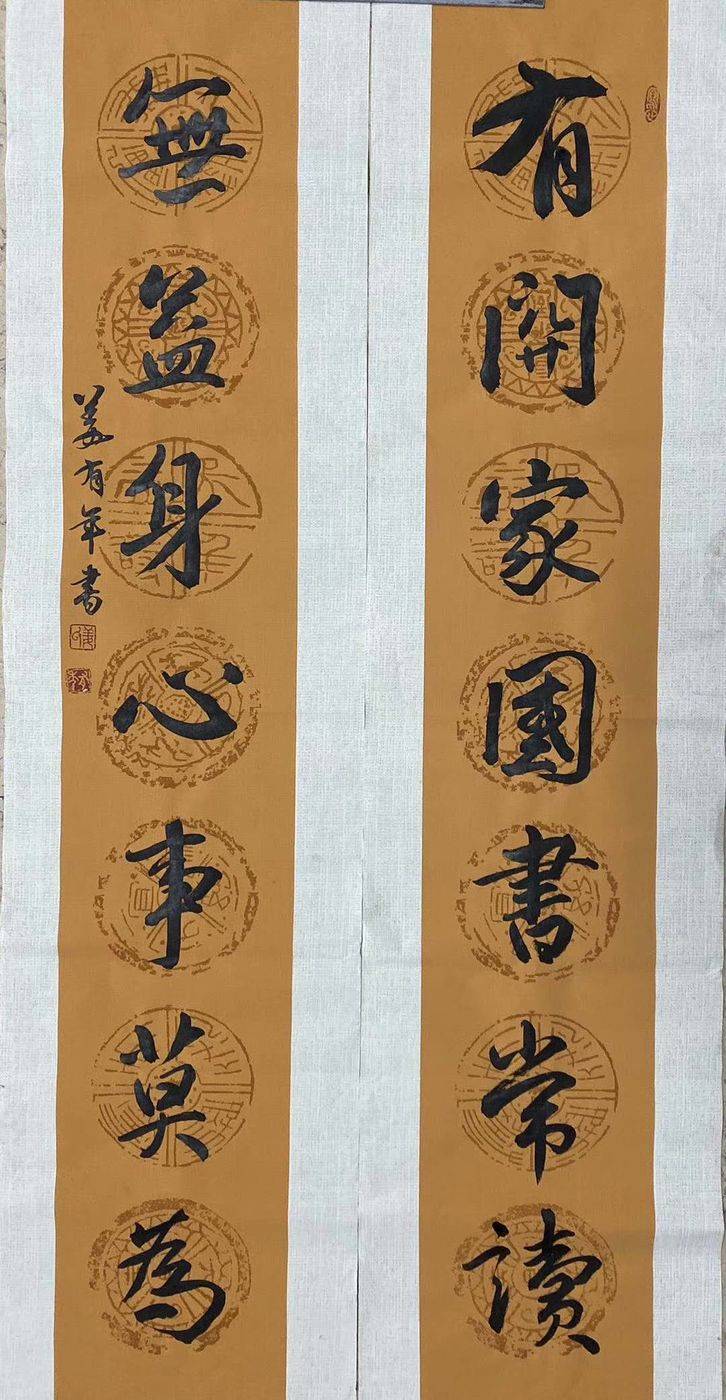 有關家國書常讀
無益身心事莫為
姜有年書